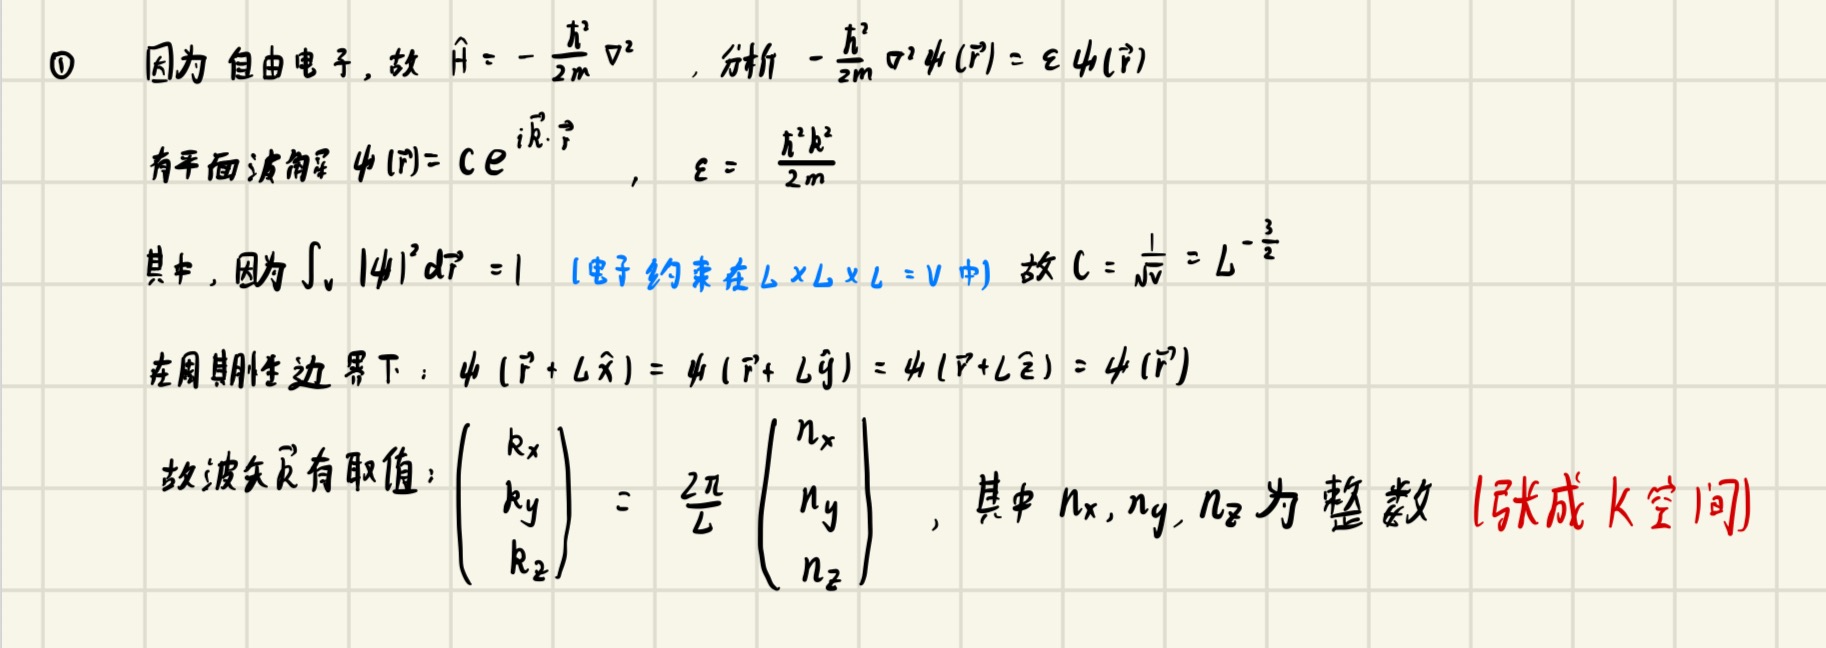 ① 因为自由电子，故 Ĥ = - ħ²/2m ∇² ，分析 - ħ²/2m ∇²ψ(r⃗) = ε ψ(r⃗)
有平面波解 ψ(r⃗) = C e^{i k⃗·r⃗} ， ε = ħ²k²/2m
其中，因为 ∫_V |ψ|² dr⃗ = 1 (电子约束在 L×L×L = V 中) 故 C = 1/√V = L^{-3/2}
在周期性边界下：ψ(r⃗ + Lx̂) = ψ(r⃗ + Lŷ) = ψ(r⃗ + Lẑ) = ψ(r⃗)
故波矢k⃗有取值：(kx ky kz) = 2π/L (nx ny nz) ，其中 nx, ny, nz 为整数 (张成 K 空间)